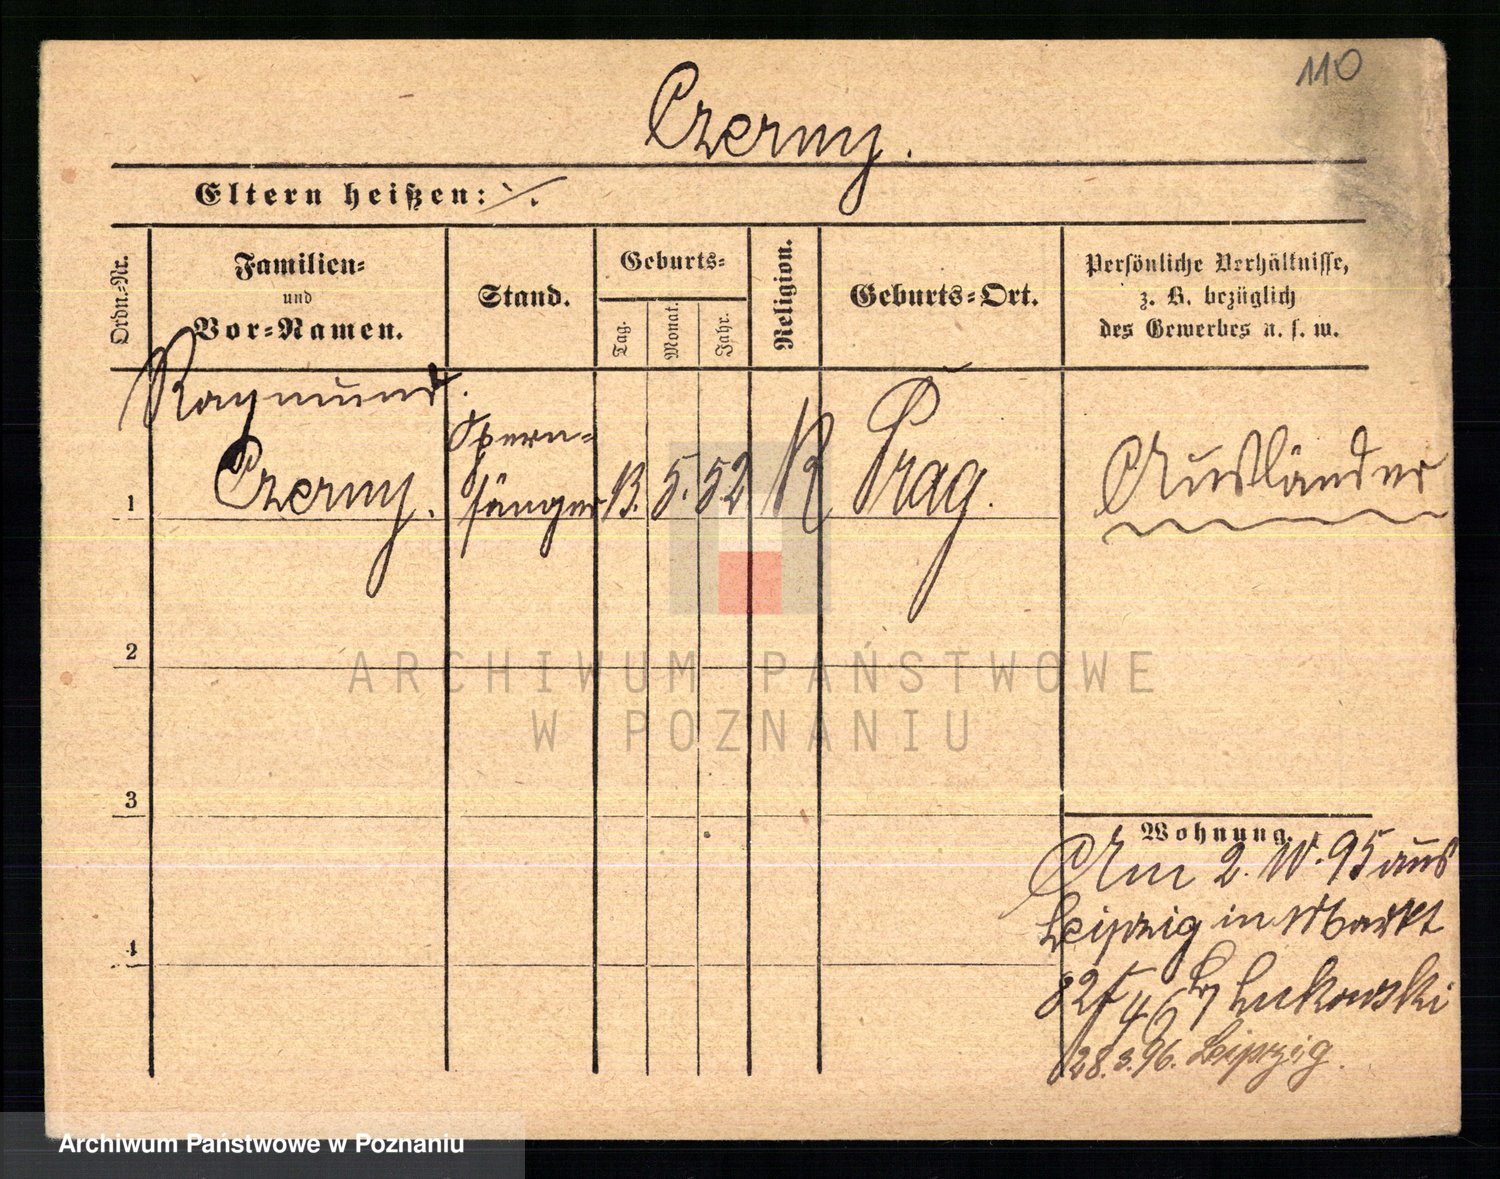 110
Czerny.
Eltern heißen: ·/.
Ordn.-Nr.
Familien-
und
Vor-Namen.
Stand.
Geburts-
Tag.
Monat.
Jahr.
Religion.
Geburts-Ort.
Persönliche Verhältnisse,
z. B. bezüglich
des Gewerbes u. s. w.
Raymund
Czerny.
Opern-
sänger
13. 5. 52
K
Prag.
Ausländer
1
2
3
4
ARCHIWUM PAŃSTWOWE
W POZNANIU
Wohnung.
Am 2. 10. 95 aus
Leipzig in Markt
82 46 Lukowski
28. 3. 96. Leipzig.
Archiwum Państwowe w Poznaniu